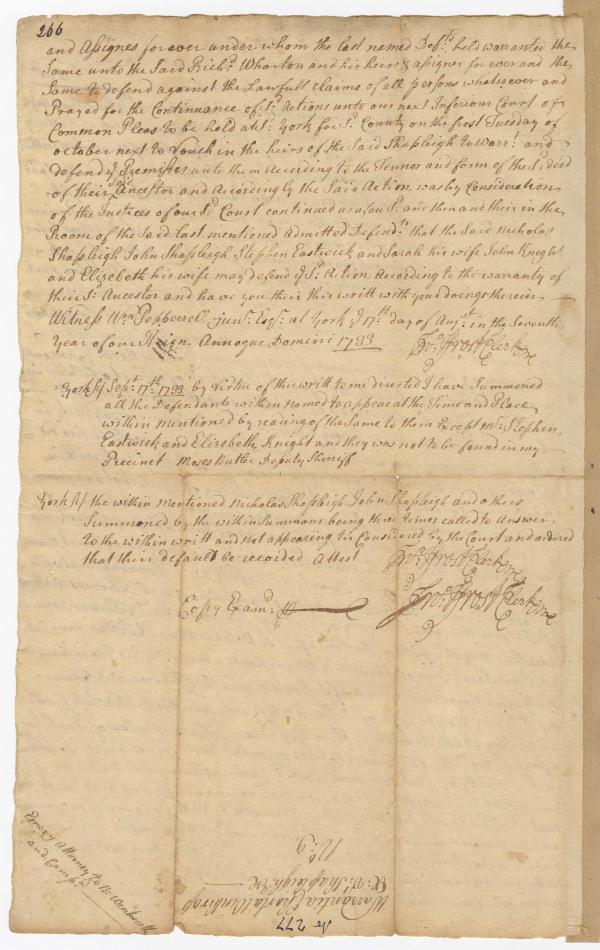 266
and Assignes for ever under whom the last named Defts held warranted the
Same unto the Said Richd Wharton and his heirs & assignes for ever and the
Same to defend against the Lawfull claims of all persons whatsoever and
Prayed for the Continuance of sd Actions unto our next Inferiour Court of
Common Pleas to be held at sd York for sd County on the first Tuesday of
october next to Vouch in the heirs of the Said Shapleigh to Warrt and
defend ye Premises unto them According to the Tennor and form of the sd deed
of their Ancestor and Accordingly the Said Action was by Consideration
of the Justices of our sd Court continued as afoursd and then and their in the
Room of the Said last mentioned Admitted Defendts that the Said Nicholas
Shapleigh John Shapleigh Stephen Eastwick and Sarah his wife John Knight
and Elizebeth his wife may defend ye sd Action According to the warranty of
their sd Ancestor and have you their this writt with your doings therein
Witness Wm Pepperrell Junr Esqr at York ye 17th day of Augst in the Seventh
Year of our Reign Annoque Domini 1733
Jos Frost Clerk
York ss Sept 17th 1733 by Virtue of this writt to me directed I have Summoned
all the Defendants within named to appear at the time and Place
within mentioned by reading of the Same to them Except mr Stephen
Eastwick and Elizebeth Knight and they was not to be found in my
Precinct Moses Butler Deputy Sheriff
York ss the within mentioned Nicholas Shapleigh John Shapleigh and others
Summoned by the within Summons being three times called to Answer
to the within writt and not appearing Tis Considered by the Court and ordered
that their default be recorded Attest
Jos Frost Clerk
Jos Frost Clerk
Copy Examd
Emery Attorney to Mr Wentworth
and Comp
No 9
vs Shapleigh &c
Warrantia Charta Winthrop
No 277